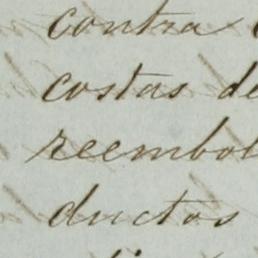 contra
costas de
reembol
ductos